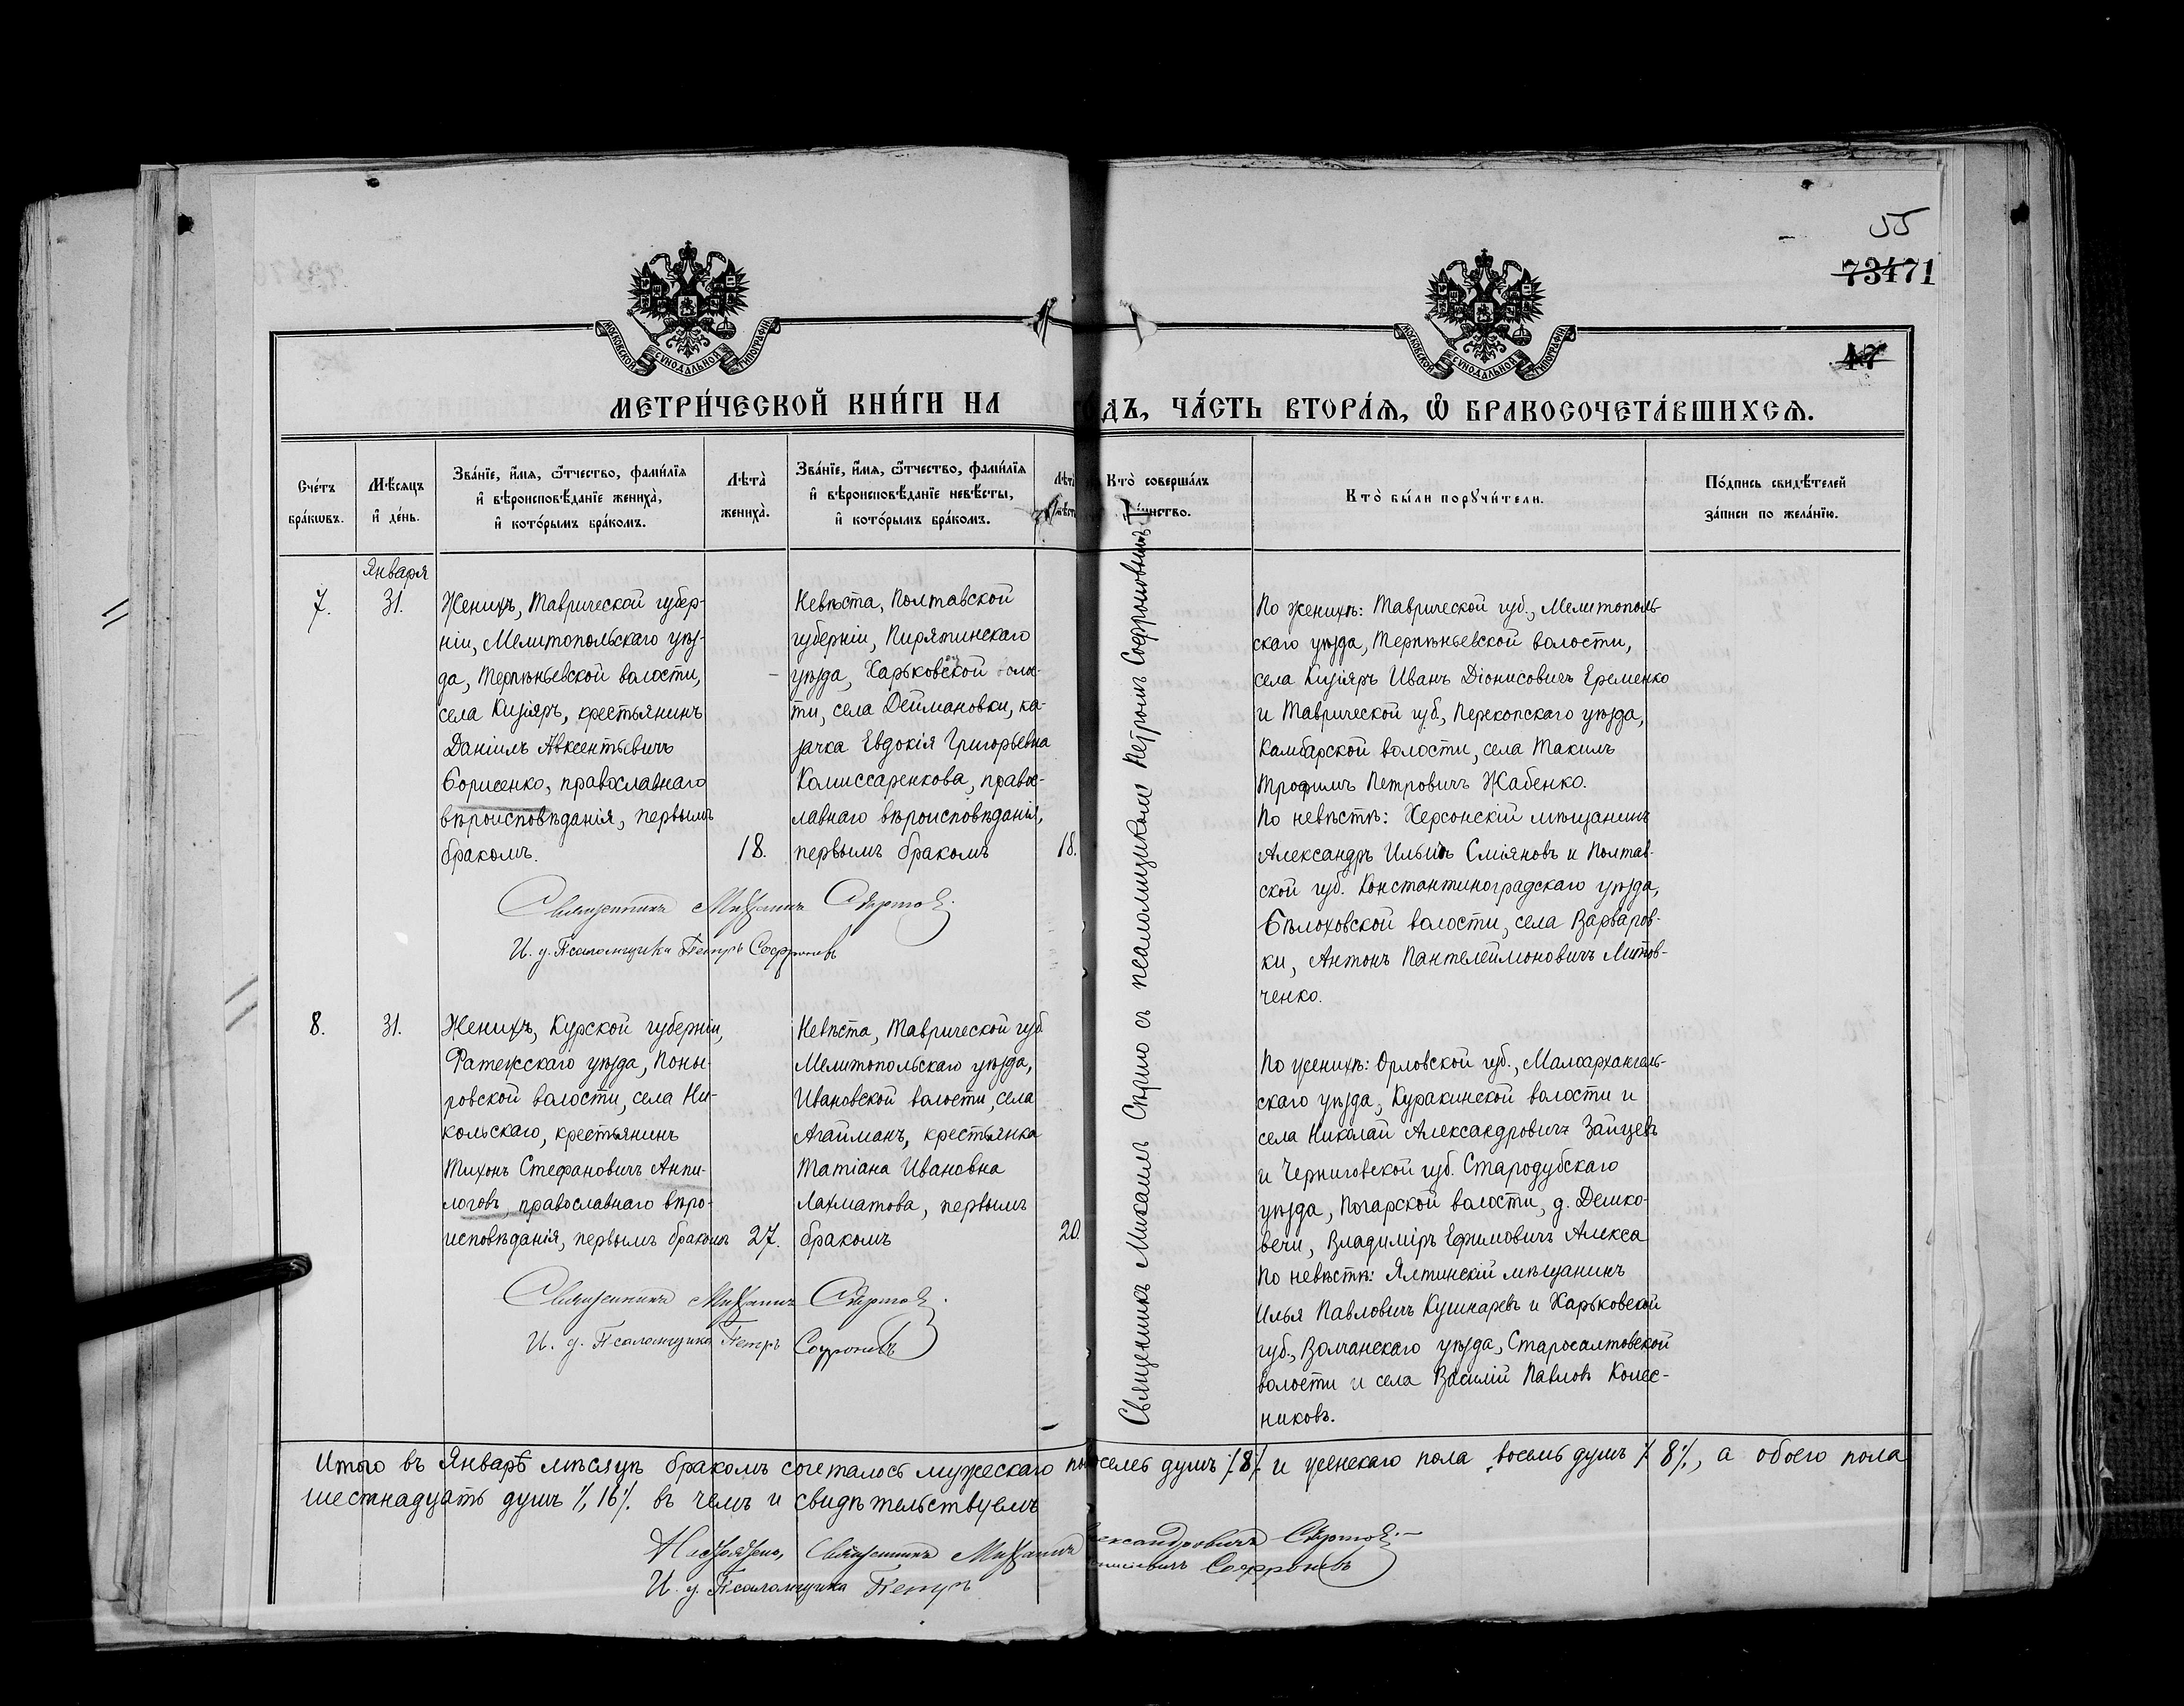 55
73471
47
МОСКОВСКОЙ СѴНОДАЛЬНОЙ ТИПОГРАФІИ
МОСКОВСКОЙ СѴНОДАЛЬНОЙ ТИПОГРАФІИ
МЕТРИ́ЧЕСКОЙ КНИ́ГИ НА ГОДЪ, ЧА́СТЬ ВТОРА́Ѧ, Ѡ҆ БРАКОСОЧЕТА́ВШИХСѦ.
Сче́тъ
бра́кѡвъ.
Мѣ́сяцъ
и҆ де́нь.
Зва́нїе, и҆́мѧ, ѻ҆́тчество, фами́лїѧ
и҆ вѣроисповѣ́данїе жениха̀,
и҆ кото́рымъ бра́комъ.
Лѣта̀
жениха̀.
Зва́нїе, и҆́мѧ, ѻ҆́тчество, фами́лїѧ
и҆ вѣроисповѣ́данїе невѣ́сты,
и҆ кото́рымъ бра́комъ.
Лѣта̀
Кто̀ соверша́лъ
та́инство.
Кто̀ бы́ли порꙋчи́тели.
По́дпись свидѣ́телей
за́писи по жела́нїю.
Января
7.
31.
Женихъ, Таврической губер-
ніи, Мелитопольскаго уѣз-
да, Терпѣньевской волости,
села Кизіяръ, крестьянинъ
Даніилъ Авксентьевичъ
Борисенко, православнаго
вѣроисповѣданія, первымъ
бракомъ.
18.
Невѣста, Полтавской
губерніи, Пирятинскаго
уѣзда, Харьковской волос-
ти, села Деймановки, ка-
зачка Евдокія Григорьевна
Комиссаренкова, правос-
лавнаго вѣроисповѣданія,
первымъ бракомъ
18.
Священникъ Михаилъ
И. д. Псаломщика Петръ Софроновъ
Священникъ Михаилъ съ псаломщикомъ Петромъ Софроновымъ
По женихѣ: Таврической губ., Мелитополь-
скаго уѣзда, Терпѣньевской волости,
села Кизіяръ Иванъ Діонисовичъ Еременко
и Таврической губ., Перекопскаго уѣзда,
Камбарской волости, села Такилъ
Трофимъ Петровичъ Жабенко.
По невѣстѣ: Херсонскій мѣщанинъ
Александръ Ильичъ Сміяновъ и Полтав-
ской губ. Константиноградскаго уѣзда,
Бѣлоховской волости, села Варваров-
ки, Антонъ Пантелеймоновичъ Литов-
ченко.
8.
31.
Женихъ, Курской губерніи,
Фатежскаго уѣзда, Поны-
ровской волости, села Ни-
кольскаго, крестьянинъ
Тихонъ Стефановичъ Анпи-
логовъ, православнаго вѣро-
исповѣданія, первымъ бракомъ
27.
Невѣста, Таврической губ.
Мелитопольскаго уѣзда,
Ивановской волости, села
Агайманъ, крестьянка
Татіана Ивановна
Лахматова, первымъ
бракомъ
20.
Священникъ Михаилъ
И. д. Псаломщика Петръ Софроновъ
По женихѣ: Орловской губ., Малоархангель-
скаго уѣзда, Куракинской волости и
села Николай Александровичъ Зайцевъ
и Черниговской губ. Стародубскаго
уѣзда, Погарской волости, д. Демко-
вечи, Владиміръ Ефимовичъ Алекса
По невѣстѣ: Ялтинскій мѣщанинъ
Илья Павловичъ Кушнаревъ и Харьковской
губ., Волчанскаго уѣзда, Старосалтовской
волости и села Василій Павловъ Колес-
никовъ.
Итого въ Январѣ мѣсяцѣ бракомъ сочеталось мужескаго пола восемь душъ ∕. 8 ∕. и женскаго пола восемь душъ ∕. 8 ∕., а обоего пола
шестнадцать душъ ∕. 16 ∕. въ чемъ и свидѣтельствуемъ
Священникъ Михаилъ Александровичъ
И. д. Псаломщика Петръ Софроновъ